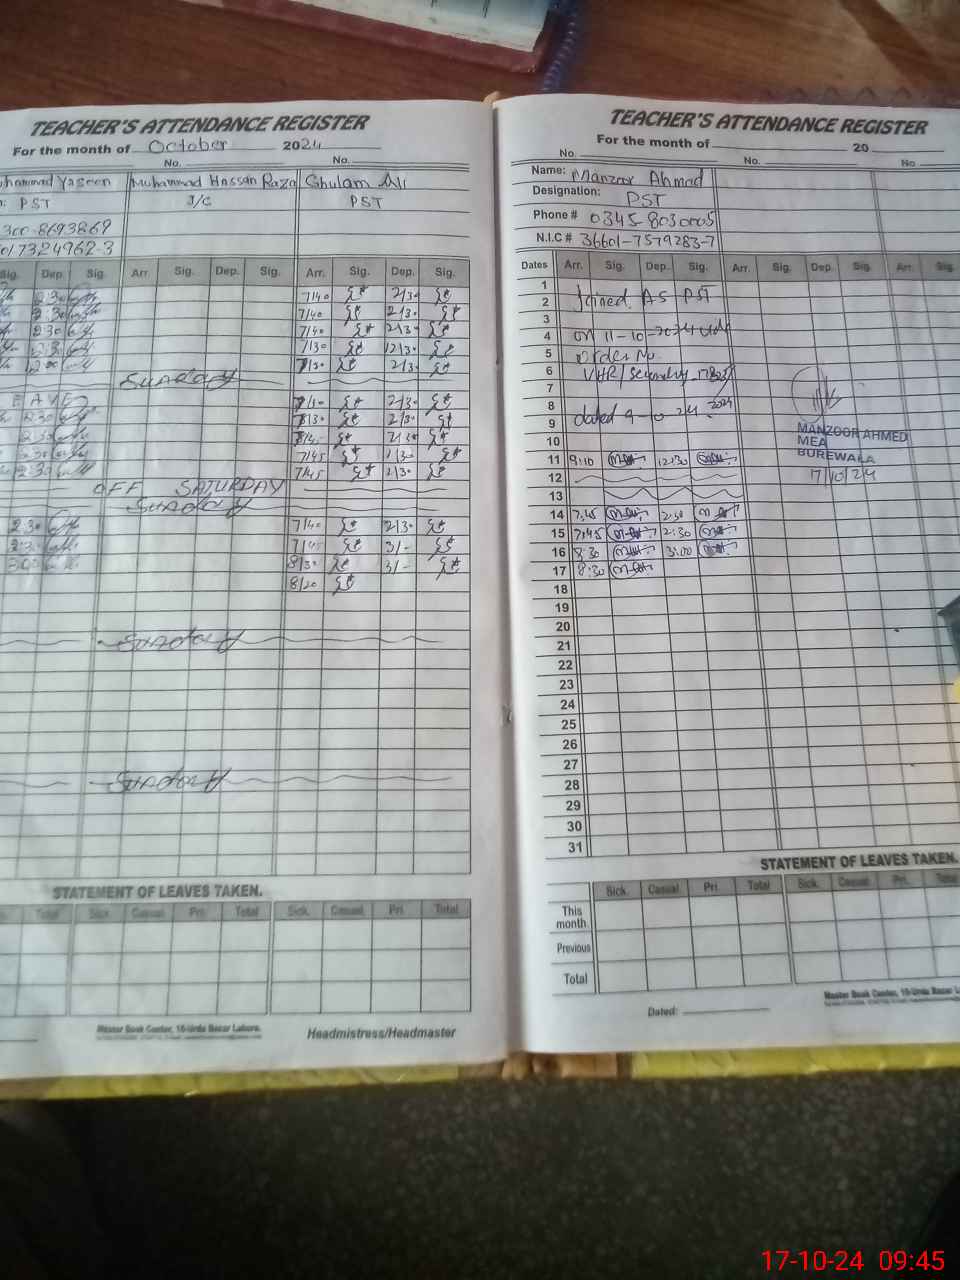 TEACHER'S ATTENDANCE REGISTER
For the month of October 2024
No. No.
Yaseen Muhammad Hassan Raza Ghulam Ali
PST J/C PST
300-8693869
017324962-3
Sig. Dep. Sig. Arr. Sig. Dep. Sig. Arr. Sig. Dep. Sig.
2:30 7/40 2/30
2:30 7/40 2/30
2:30 7/40 2/30
2:30 7/30 12/30
12:00 7/30 2/30
Sunday
7/40 2/30
2:30 8/30 2/30
2:30 2/30
2:30 7/45 1/30
2:30 7/45 2/30
OFF SATURDAY
Sunday
2:30 7/40 2/30
2:30 7/45 3/-
3:00 8/30 3/-
8/20
Sunday
Sunday
STATEMENT OF LEAVES TAKEN.
Total Sick. Casual Pri. Total Sick. Casual Pri Total
Master Book Center, 16-Urdu Bazar Lahore.
Headmistress/Headmaster
TEACHER'S ATTENDANCE REGISTER
For the month of 20
No. No. No
Name: Manzoor Ahmad
Designation: PST
Phone # 0345-8030005
N.I.C # 36601-7579283-7
Dates Arr. Sig. Dep. Sig. Arr. Sig. Dep. Sig. Arr. Sig.
1
2 Joined AS PST
3
4 on 11-10-2024
5 order No.
6
7
8
9 dated 9-10-24
10
MANZOOR AHMED
MEA
BUREWALA
17/10/24
11 9:10 12:30
12
13
14 7:45 2:30
15 7:45 2:30
16 8:30 3:00
17 8:30
18
19
20
21
22
23
24
25
26
27
28
29
30
31
STATEMENT OF LEAVES TAKEN.
Sick. Casual Pri. Total Sick. Casual Pri. Total
This month
Previous
Total
Dated:
Master Book Center, 16-Urdu Bazar
17-10-24 09:45